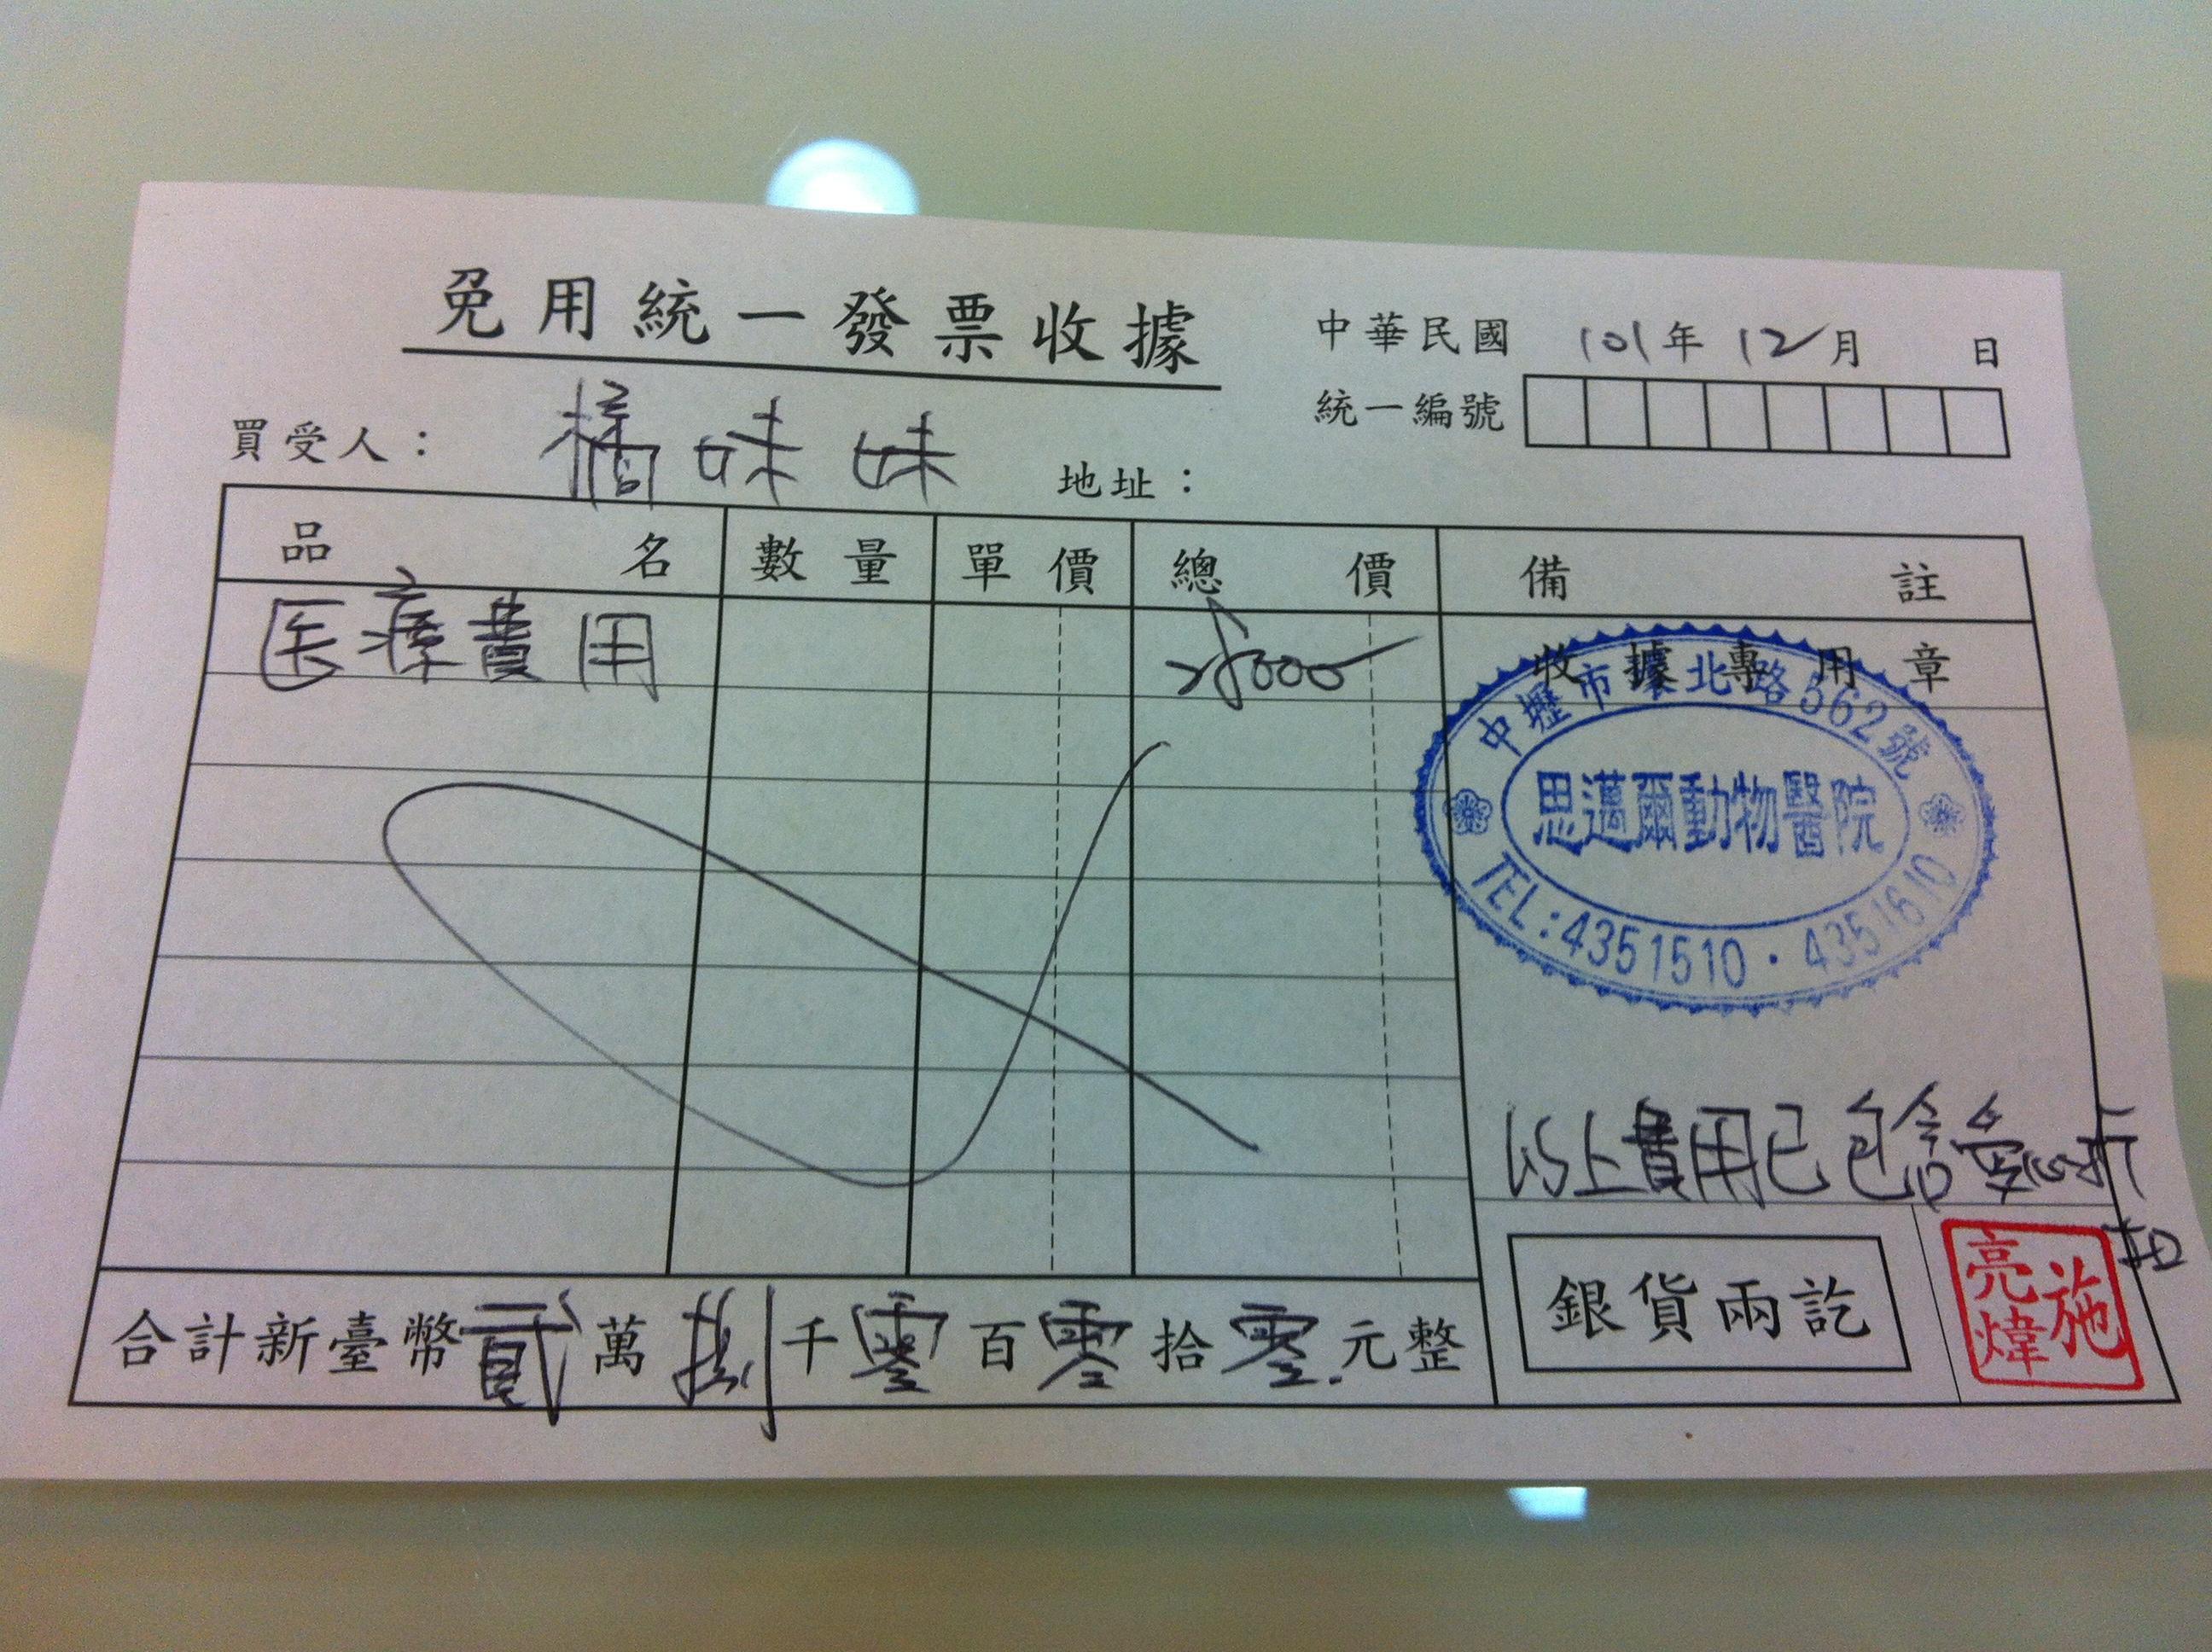 免用統一發票收據
中華民國 101年 12月 日
統一編號
買受人： 橘妹妹 地址：
品名 數量 單價 總價 備註
医療費用 28000 收據專用章
中壢市環北路562號
思邁爾動物醫院
TEL:4351510·4351610
以上費用已包含愛心折
扣
銀貨兩訖
施亮煒
合計新臺幣貳萬捌千零百零拾零元整